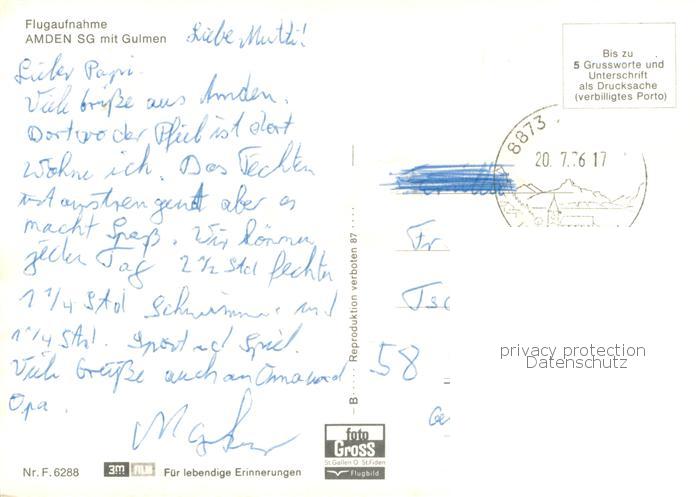 Flugaufnahme
AMDEN SG mit Gulmen
Liebe Mutti!
Lieber Papi.
Viele Grüße aus Amden.
Dort wo der Pfeil ist dort
wohne ich. Das Fechten
ist anstrengend aber es
macht Spaß. Wir können
jeden Tag 2 1/2 Std fechten
1 1/4 Std Schwimmen und
1 1/4 Std. Sport und Spiel.
Viele Grüße auch an Oma und
Opa.
Nr. F. 6288
3m
Für lebendige Erinnerungen
B
Reproduktion verboten 87
foto
GROSS
St.Gallen O St.Fiden
Flugbild
Bis zu
5 Grussworte und
Unterschrift
als Drucksache
(verbilligtes Porto)
8873
20.7.76 17
Fr
Tsc
58
privacy protection
Datenschutz